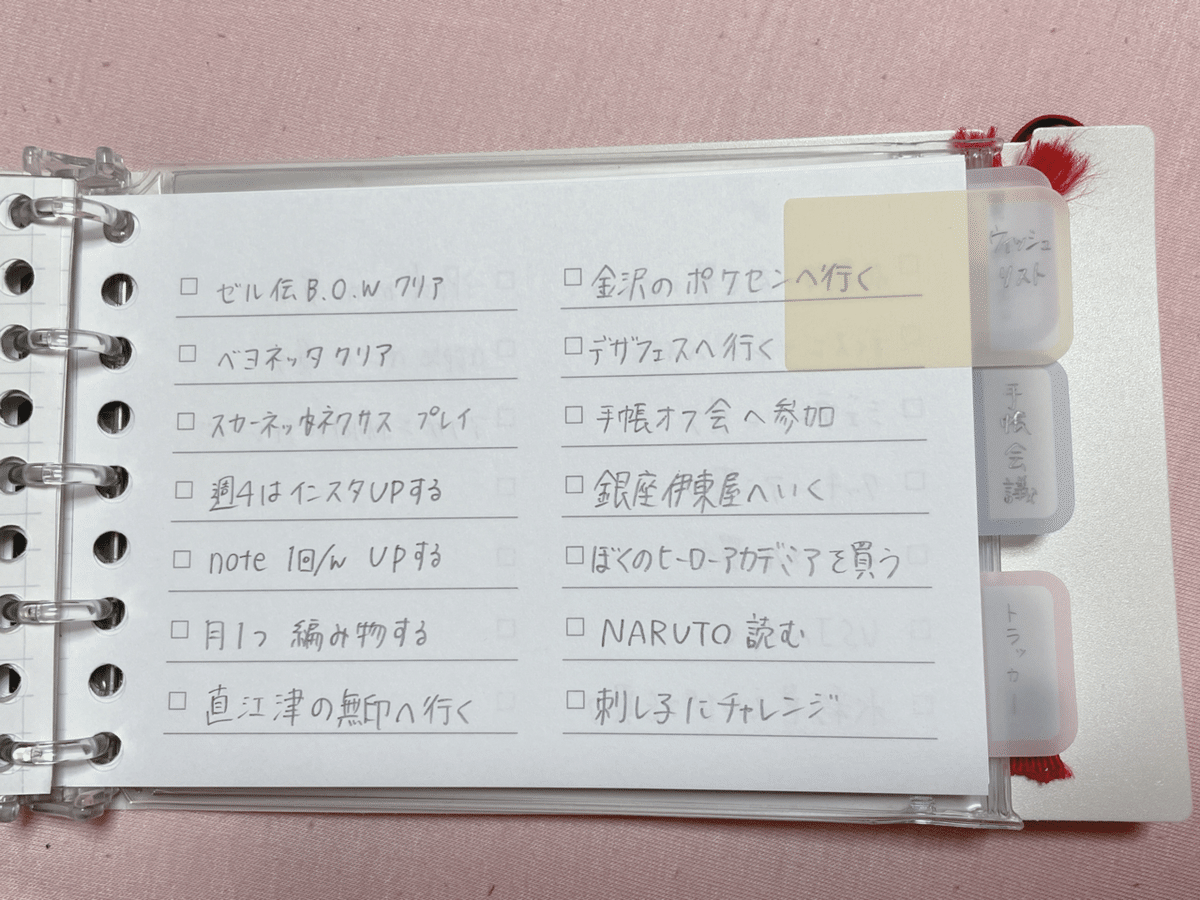 □ ゼル伝 B.O.W クリア
□ ベヨネッタ クリア
□ スカーネッ ネクサス プレイ
□ 週4はインスタUPする
□ note 1回/w UPする
□ 月1つ 編み物する
□ 直江津の無印へ行く
□ 金沢のポケセンへ行く
□ デザフェスへ行く
□ 手帳オフ会へ参加
□ 銀座伊東屋へいく
□ ぼくのヒーローアカデミアを買う
□ NARUTO 読む
□ 刺し子にチャレンジ
ウィッシュ
リスト
手帳会議
トラッカー